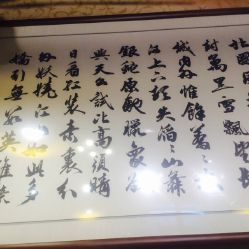 北國
封萬里雪飄望長
城內外惟餘莽莽大
河上下頓失滔滔山舞
銀蛇原馳蠟象欲
與天公試比高須晴
日看紅裝素裹分
外妖嬈江山如此多
嬌引無數英雄競